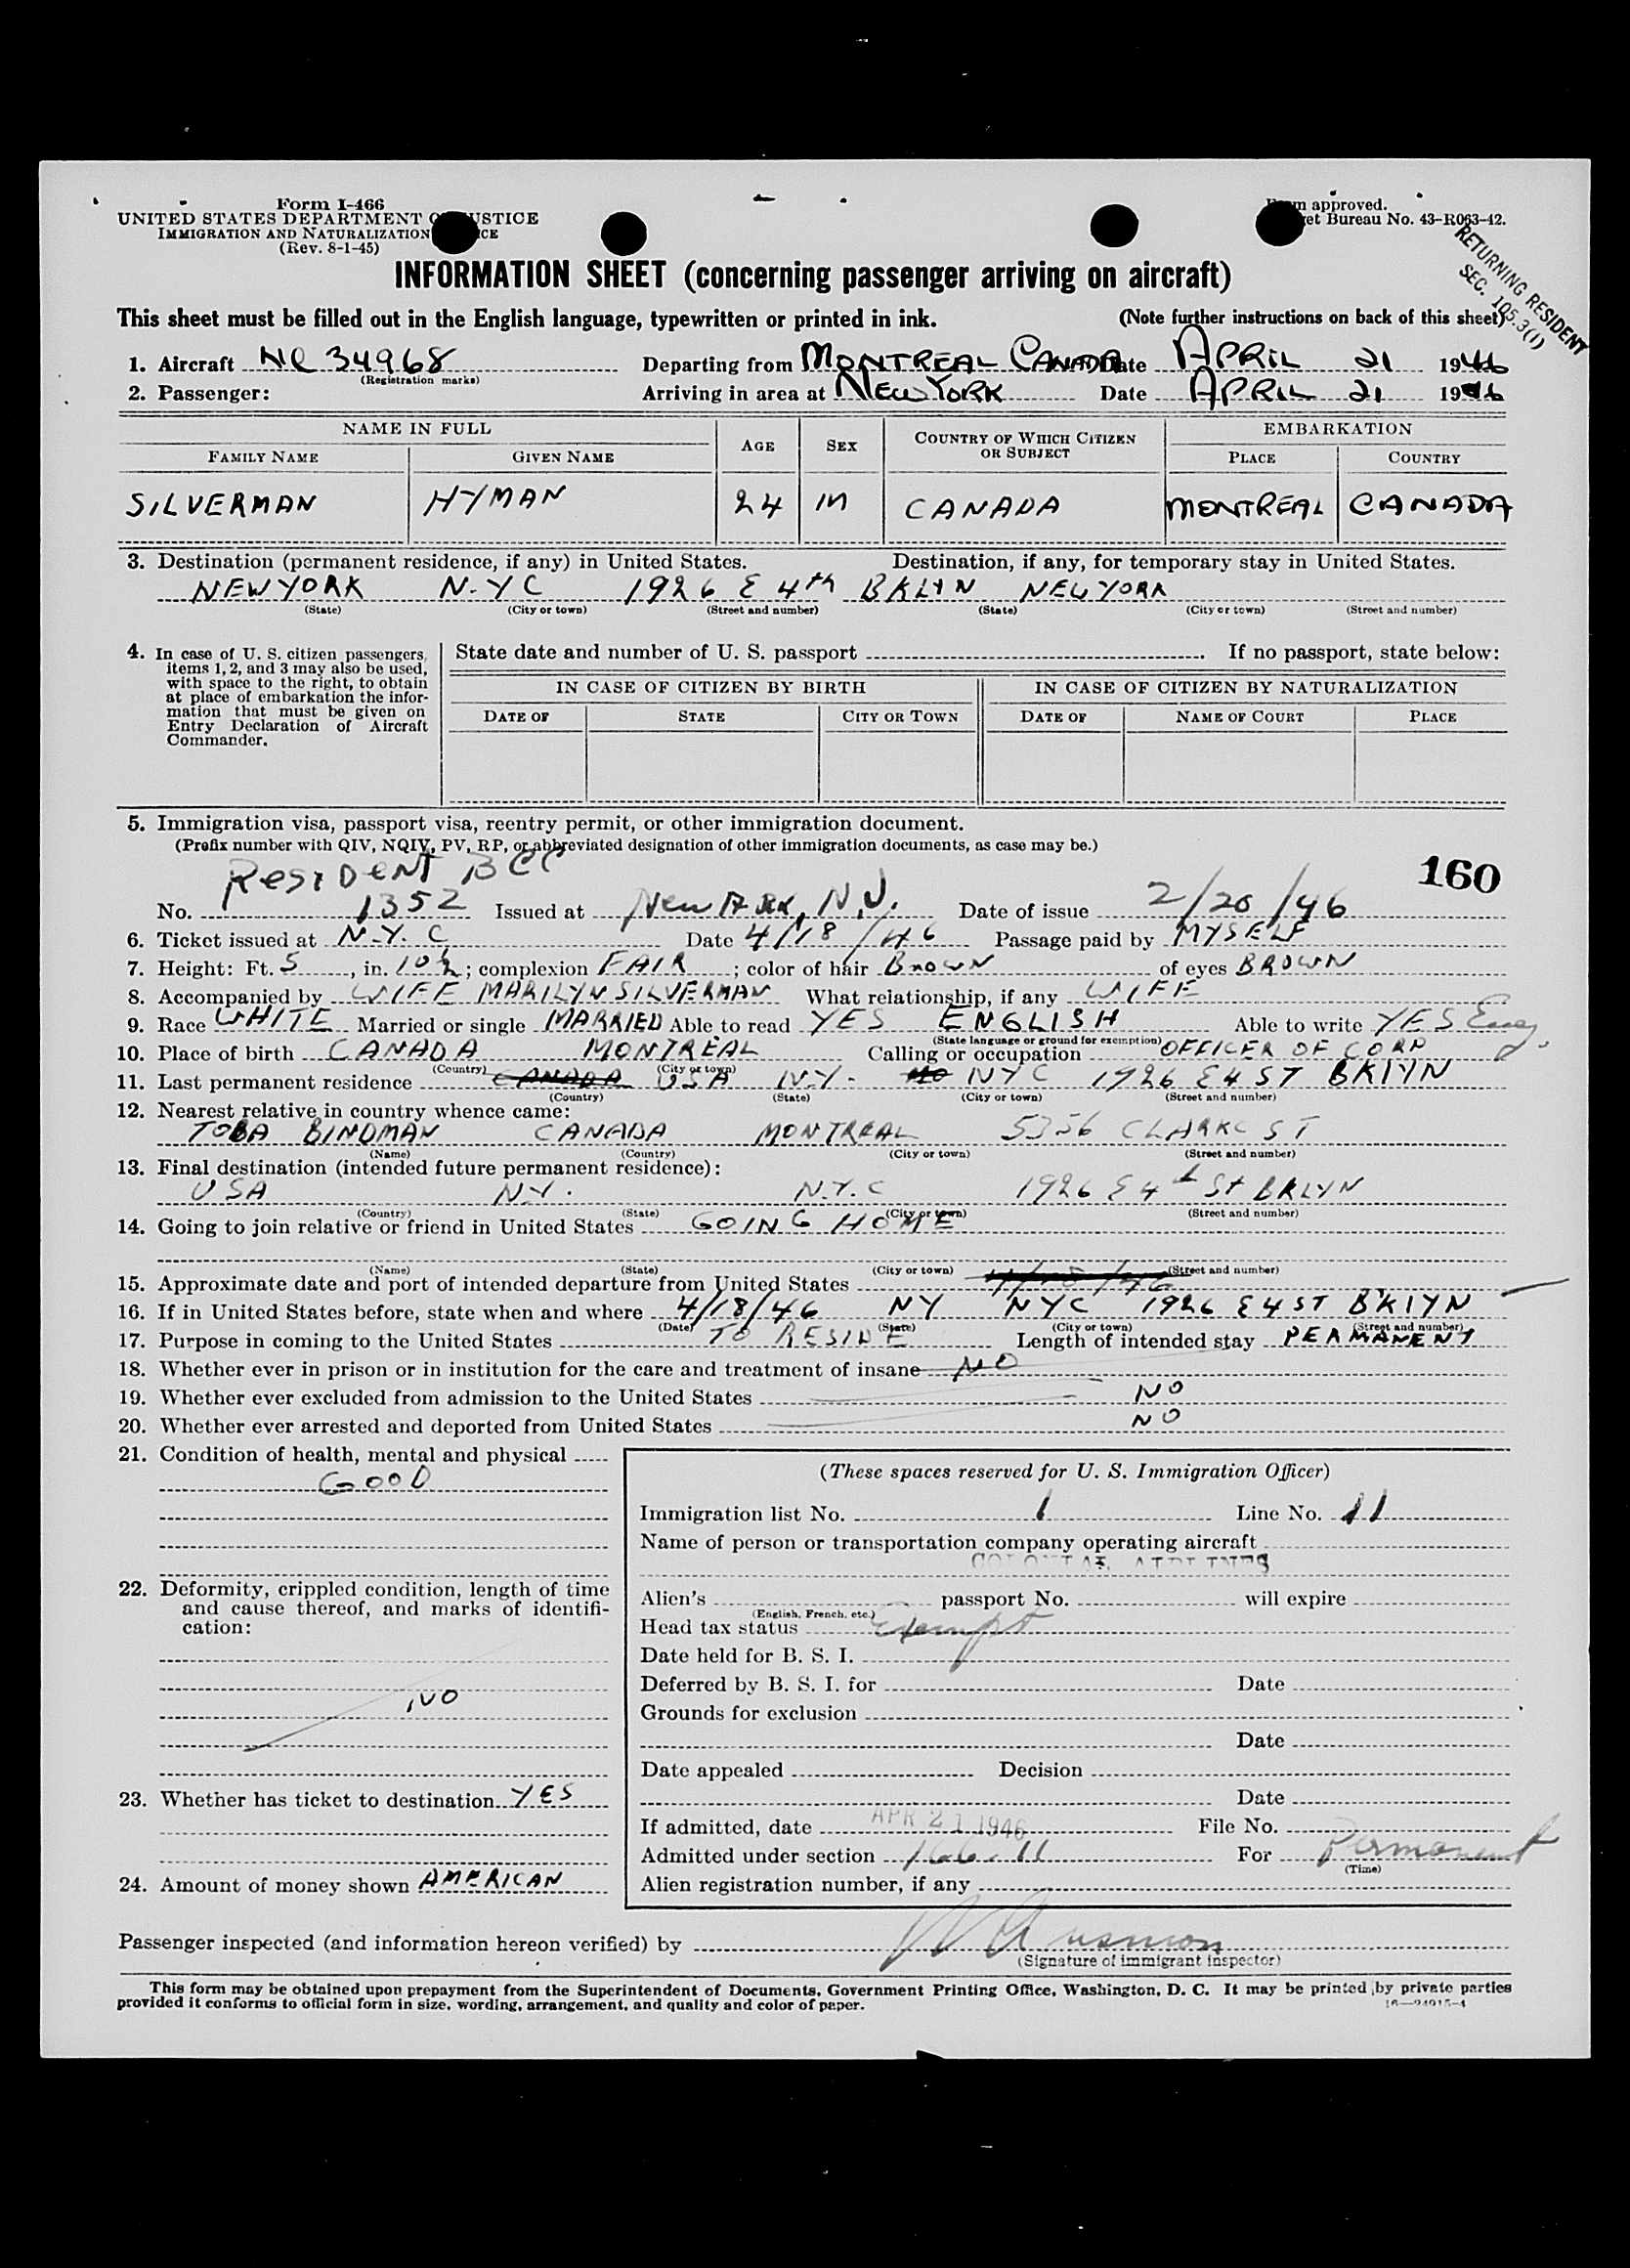 Form I-466
UNITED STATES DEPARTMENT OF JUSTICE
IMMIGRATION AND NATURALIZATION
(Rev. 8-1-45)
approved.
Bureau No. 43-R063-42.
RETURNING RESIDENT
SEC. 105.3(1)
INFORMATION SHEET (concerning passenger arriving on aircraft)
This sheet must be filled out in the English language, typewritten or printed in ink. (Note further instructions on back of this sheet)
1. Aircraft NC 34968 Departing from MONTREAL CANADA Date APRIL 21 1946
(Registration marks)
2. Passenger: Arriving in area at NEW YORK Date APRIL 21 1946
NAME IN FULL AGE SEX COUNTRY OF WHICH CITIZEN OR SUBJECT EMBARKATION
FAMILY NAME GIVEN NAME PLACE COUNTRY
SILVERMAN HYMAN 24 M CANADA MONTREAL CANADA
3. Destination (permanent residence, if any) in United States. Destination, if any, for temporary stay in United States.
NEW YORK N.Y C 1926 E 4th BKLYN NEW YORK
(State) (City or town) (Street and number) (State) (City or town) (Street and number)
4. In case of U. S. citizen passengers, items 1, 2, and 3 may also be used, with space to the right, to obtain at place of embarkation the information that must be given on Entry Declaration of Aircraft Commander.
State date and number of U. S. passport If no passport, state below:
IN CASE OF CITIZEN BY BIRTH IN CASE OF CITIZEN BY NATURALIZATION
DATE OF STATE CITY OR TOWN DATE OF NAME OF COURT PLACE
5. Immigration visa, passport visa, reentry permit, or other immigration document.
(Prefix number with QIV, NQIV, PV, RP, or abbreviated designation of other immigration documents, as case may be.)
RESIDENT BCC 160
No. 1352 Issued at Newark, N.J. Date of issue 2/20/46
6. Ticket issued at N.Y. C Date 4/18/46 Passage paid by MYSELF
7. Height: Ft. 5, in. 10½; complexion FAIR; color of hair BROWN of eyes BROWN
8. Accompanied by WIFE MARILYN SILVERMAN What relationship, if any WIFE
9. Race WHITE Married or single MARRIED Able to read YES ENGLISH Able to write YES
(State language or ground for exemption)
10. Place of birth CANADA MONTREAL Calling or occupation OFFICER OF CORP
(Country) (City or town)
11. Last permanent residence CANADA USA N.Y. NYC 1926 E 4 ST BKLYN
(Country) (State) (City or town) (Street and number)
12. Nearest relative in country whence came:
TOBA BINDMAN CANADA MONTREAL 5356 CLARKE ST
(Name) (Country) (City or town) (Street and number)
13. Final destination (intended future permanent residence):
USA N.Y. N.Y.C 1926 E 4th St BKLYN
(Country) (State) (City or town) (Street and number)
14. Going to join relative or friend in United States GOING HOME
(Name) (State) (City or town) (Street and number)
15. Approximate date and port of intended departure from United States
16. If in United States before, state when and where 4/18/46 NY NYC 1926 E 4 ST BKLYN
(Date) (State) (City or town) (Street and number)
17. Purpose in coming to the United States TO RESIDE Length of intended stay PERMANENT
18. Whether ever in prison or in institution for the care and treatment of insane NO
19. Whether ever excluded from admission to the United States NO
20. Whether ever arrested and deported from United States NO
21. Condition of health, mental and physical
GOOD
22. Deformity, crippled condition, length of time and cause thereof, and marks of identification:
NO
23. Whether has ticket to destination YES
24. Amount of money shown AMERICAN
(These spaces reserved for U. S. Immigration Officer)
Immigration list No. 1 Line No. 11
Name of person or transportation company operating aircraft
COLONIAL AIRLINES
Alien's passport No. will expire
(English, French, etc.)
Head tax status Exempt
Date held for B. S. I.
Deferred by B. S. I. for Date
Grounds for exclusion
Date
Date appealed Decision
Date
If admitted, date APR 21 1946 File No.
Admitted under section 166.11 For Permanent
(Time)
Alien registration number, if any
Passenger inspected (and information hereon verified) by
(Signature of immigrant inspector)
This form may be obtained upon prepayment from the Superintendent of Documents, Government Printing Office, Washington, D. C. It may be printed by private parties
provided it conforms to official form in size, wording, arrangement, and quality and color of paper.